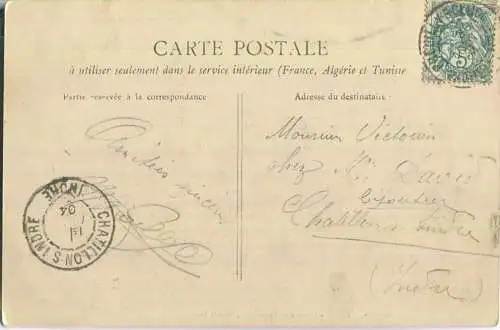 CARTE POSTALE
à utiliser seulement dans le service intérieur (France, Algérie et Tunisie
Partie réservée à la correspondance
Adresse du destinataire
Amitiés sincères
Monsieur Victorien
chez Mr David
bijoutier
Châtillon s/ Indre
(Indre)
CHATILLON S INDRE
INDRE
04